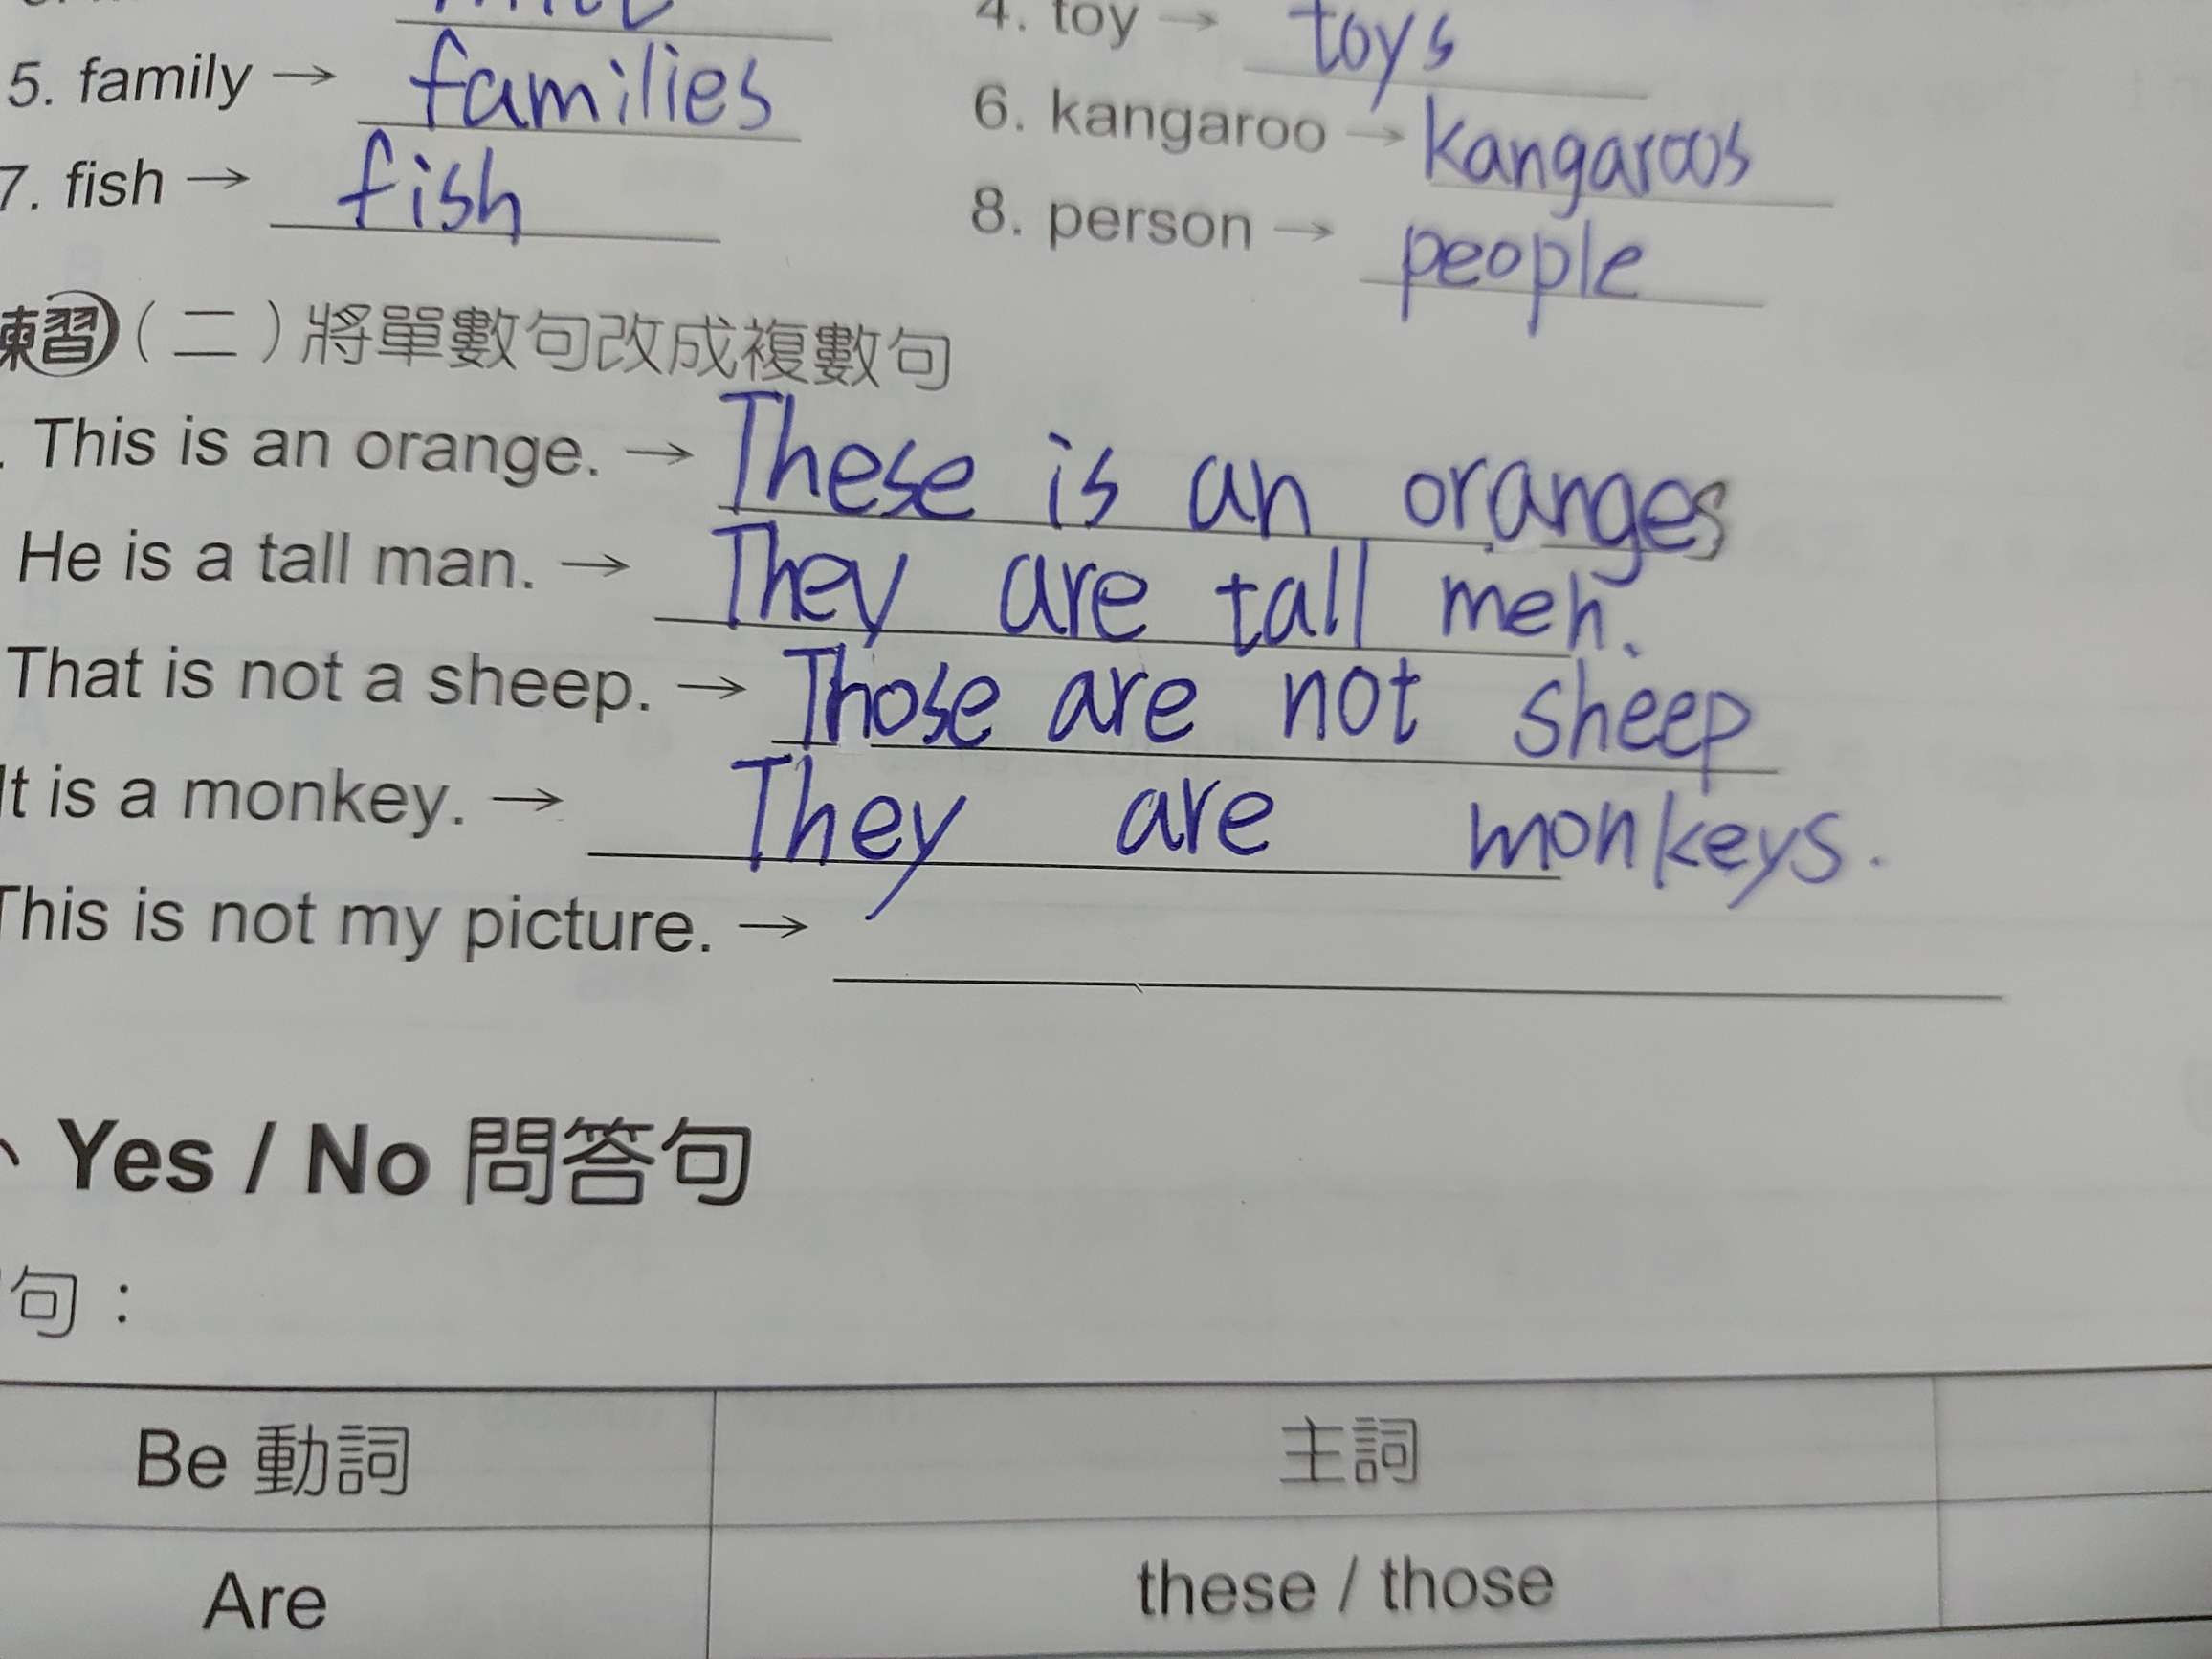 4. toy → toys
5. family → families
6. kangaroo → kangaroos
7. fish → fish
8. person → people
練習（二）將單數句改成複數句
. This is an orange. → These is an oranges
He is a tall man. → They are tall men.
That is not a sheep. → Those are not sheep
It is a monkey. → They are monkeys.
This is not my picture. →
、Yes / No 問答句
句：
Be 動詞 主詞
Are these / those